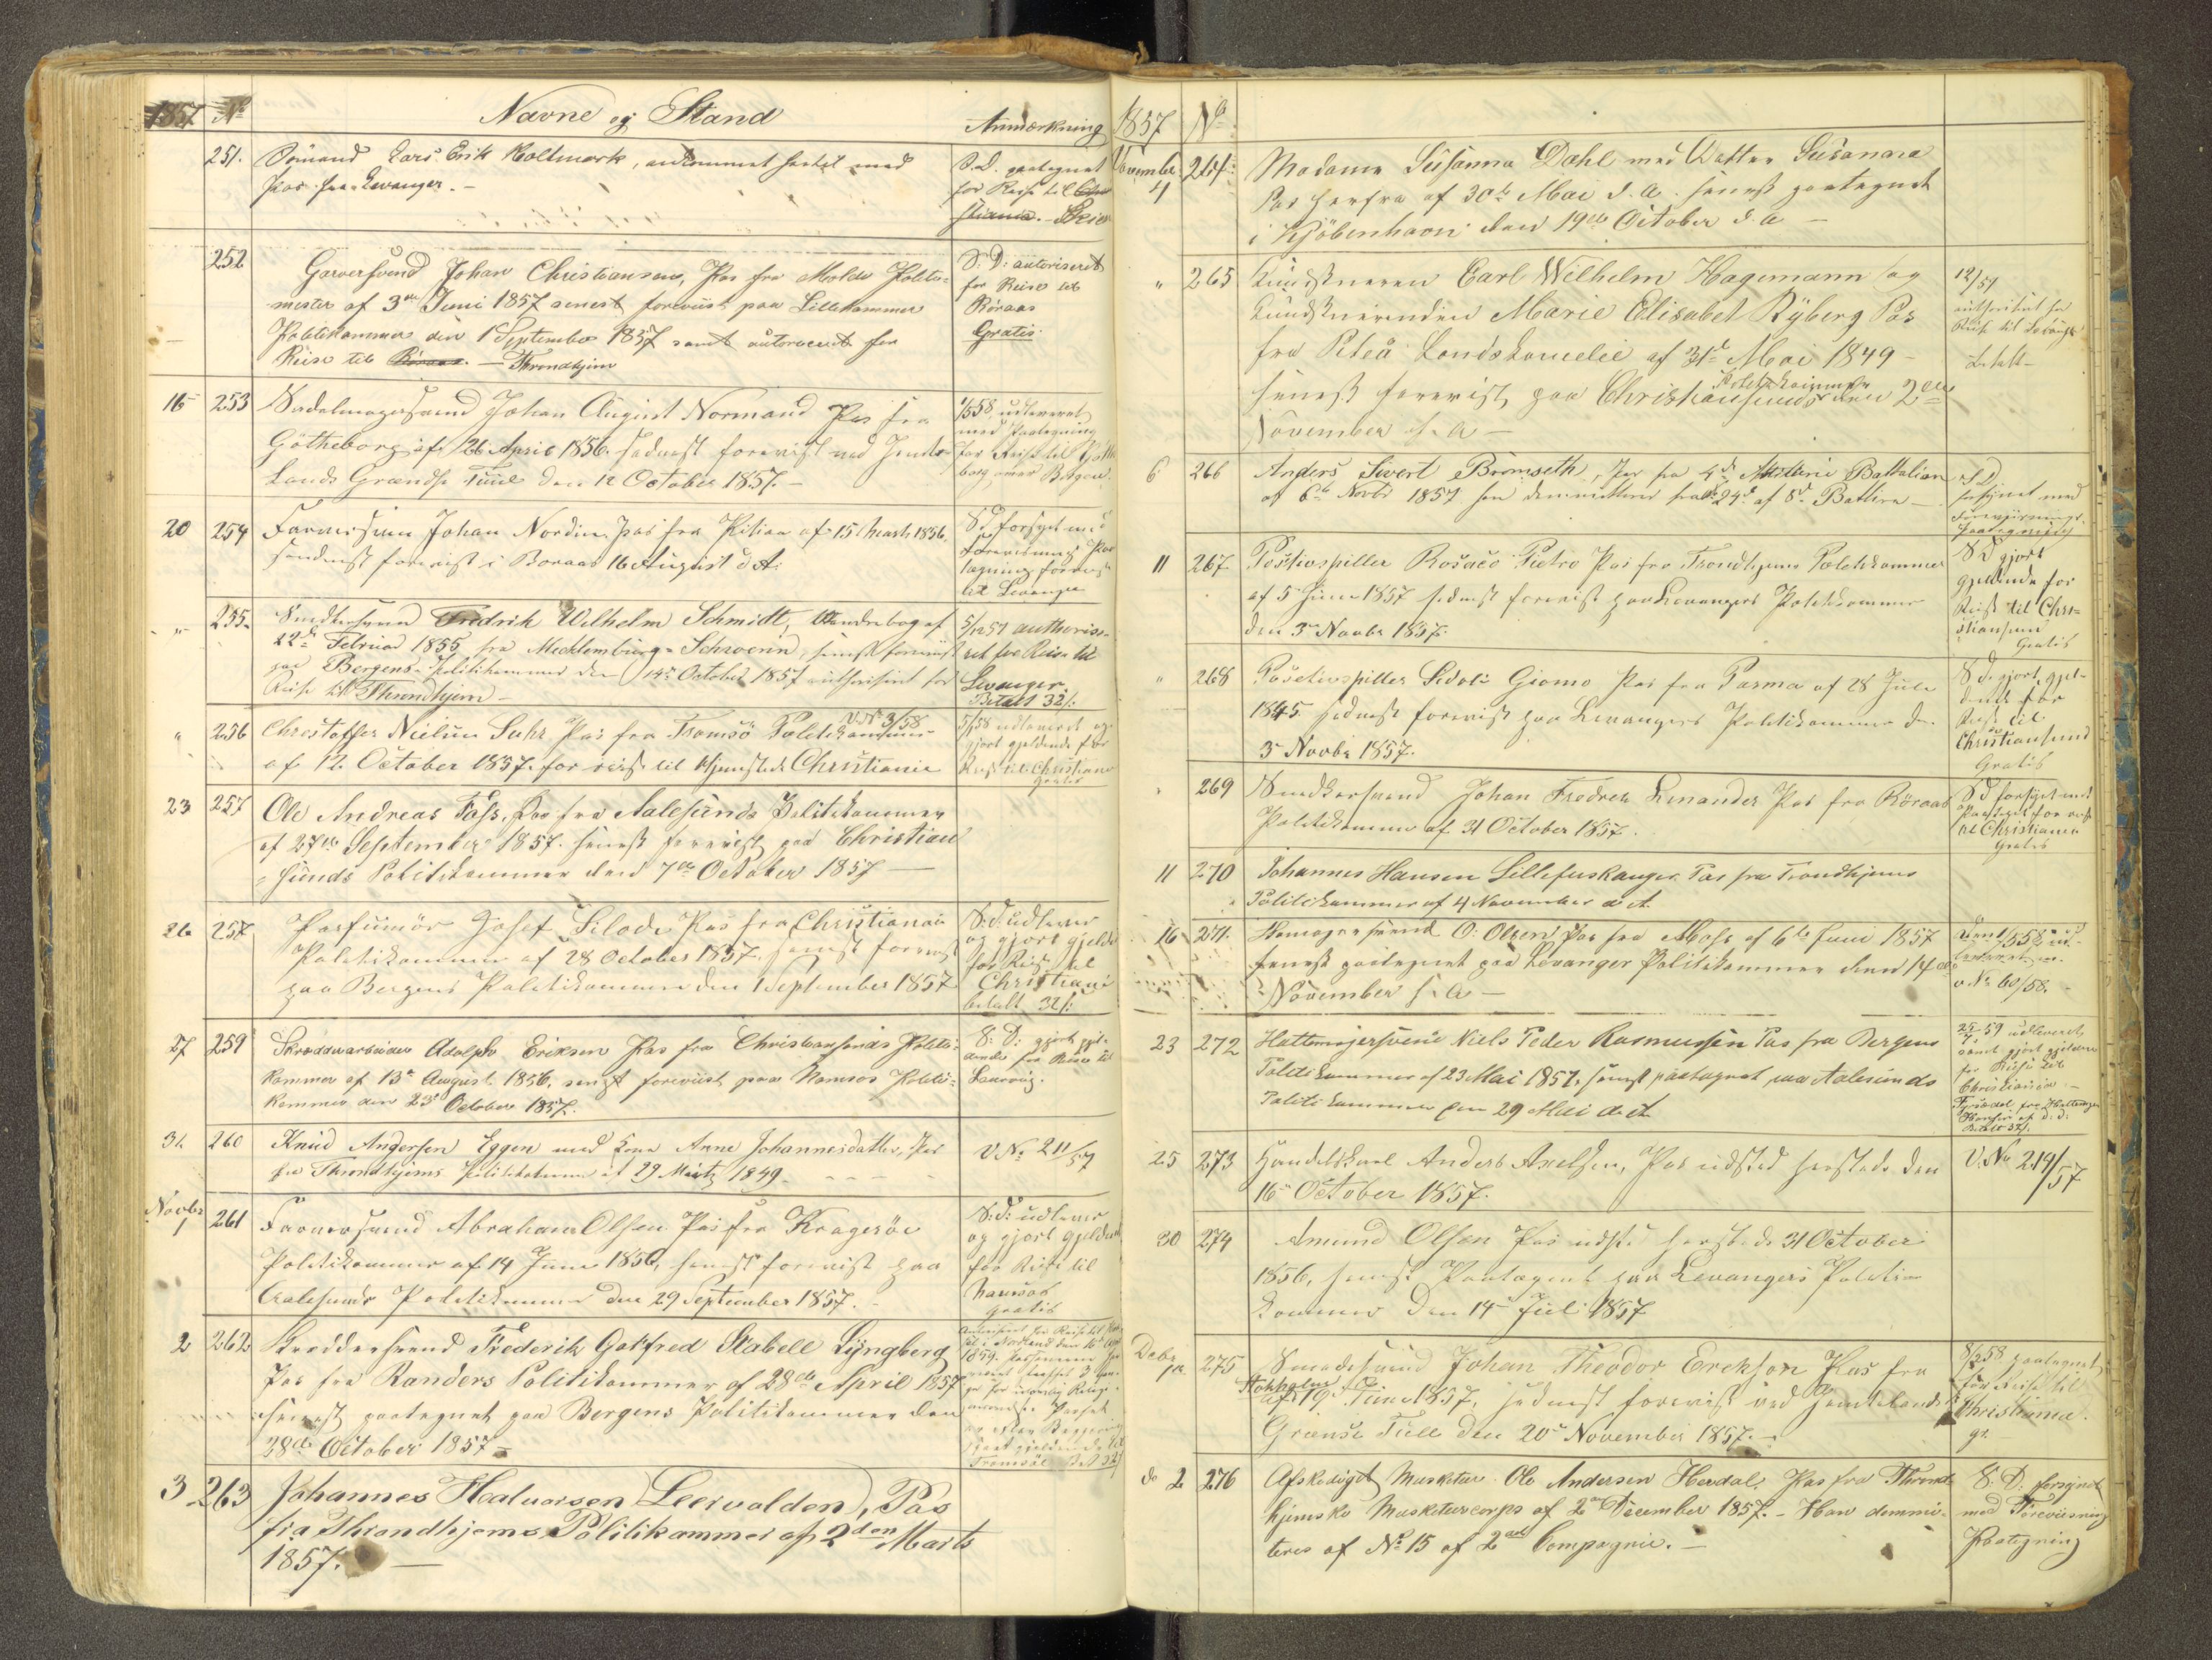 1857 No Navne og Stand Anmærkning
251. Sömand Lars Erik Holtmark, ankommet hertil med
Pas fra Levanger. —
S.D. paategnet
for Reise til
252 Garversvend Johan Christiansen, Pas fra Molde Politi-
mester af 3die Juni 1857 senest foreviist paa Lillehammer
Politikammer den 1 September 1857 samt autoriseret for
Reise til Röraas. — Throndhjem
S: D: autoriseret
for Reise til
Röraas
Gratis
16 253 Sadelmagersvend Johan August Normand Pas fra
Götheborg af 26 April 1856. sednest forevist ved Jemte-
lands Grændse Tuld den 12 October 1857. —
1/5 58 udleveret
med Paategning
for Reise til
borg over Bergen.
20 254 Farversven Johan Nordin. Pas fra Piteaa af 15 Marts 1856.
sednest forevist i Boraas 16 August d. A.
S.D. forsynet med
Forevisnings Paa-
tegning
til Levanger
" 255. Smedsvend Fredrik Wilhelm Schmidt, Vandrebog af
22de Februar 1855 fra Mecklemburg-Schwerin, senest foreviist
paa Bergens Politikammer den 14de October 1857 authoriseret for
Reise til Throndhjem —
5/12 57 authorise-
ret for Reise til
Levanger.
Betalt 32 s:
" 256 Christoffer Nielsen Suhr Pas fra Tromsö Politikammer
V. No 3/58
af 12 October 1857. for reise til Hjemstedet Christiania
5/1 58 udleveret og
gjort gjeldende for
Reise til Christiania
Gratis
23 257 Ole Andreas Foss, Pas fra Aalesunds Politikammer
af 27de September 1857. senest forevist paa Christian
sunds Politikammer den 7de October 1857 —
26 257 Parfumör Josef Silode Pas fra Christiania
Politikammer af 28 October 1857. senest forevist
paa Bergens Politikammer den 1 September 1857
S:D: udleveret
og gjort gjeldende
for Reise til
Christiania
betalt 32 s:
27 259 Skrædderarbeider Adolph Eriksen Pas fra Christiansunds Politi-
kammer af 13de August 1856, senest foreviist paa Namsos Politi-
kammer den 23de October 1857.
S: D: gjort gjel-
dende for Reise til
Laurvig.
31. 260 Knud Andersen Eggen med Kone Anne Johannesdatter, Pas
fra Throndhjems Politikammer af 29 Marts 1849. — — —
V No 211/57
Novbr
1 261 Farversvend Abraham Olsen Pas fra Kragerøe
Politikammer af 14 Juni 1856, senest forevist paa
Aalesunds Politikammer den 29 September 1857. —
S:D: udleveret
og gjort gjeldende
for Reise til
Namsos
gratis
2 262 Skræddersvend Frederik Gotfred Stabell Lyngberg
Pas fra Randers Politikammer af 28de April 1857
senest paategnet paa Bergens Politikammer den
28de October 1857 —
Tromsöe Bet 32 s
3 263 Johannes Halvorsen Leervolden, Pas
fra Throndhjems Politikammer af 2den Marts
1857. —
1857 No
November
4 264. Madame Susanna Dahl med Datter Susanna
Pas herfra af 30te Mai d. A. senest paategnet
i Kjöbenhavn den 19de October d. A —
" 265 Kunstneren Carl Wilhelm Hagemann og
Kunstnerinden Marie Elisabet Ryberg Pas
fra Piteå Landskancelie af 31te Mai 1849 —
senest forevist paa Christiansunds Politikammer den 2den
November s. A —
12/ 57
authoriseret for
Reise til Levanger
betalt —
6 266 Anders Sivert Brömseth, Pas fra 4de Artilleri Battalion
af 6te Novbr 1857 han demmitterer fra No 24 af 8de Batteri —
S.D
forsynet med
Forevisnings-
paategning
11 267. Positivspiller Rosaco Pietro Pas fra Trondhjems Politikammer
af 5 Juni 1857 sednest forevist paa Levangers Politikammer
den 3die Novbr 1857.
S D gjort
gjeldende for
Reise til Chri-
stiansund
Gratis
" 268 Positivspiller Sidoli Giomo Pas fra Parma af 28 Juli
1845. sednest forevist paa Levangers Politikammer den
3die Novbr 1857.
S D. gjort gjel-
dende for
Reise til
Christiansund
Gratis
" 269 Smedkersvend Johan Fredrek Linander Pas fra Röraas
Politikammer af 31 October 1857.
S D forsynet med
Paategn for reise
til Christiania
Gratis
11 270 Johannes Hansen Lillefuskanger. Pas fra Trondhjems
Politikammer af 4 November d. A.
16 271. O: Olsen Pas fra Moss af 6te Juni 1857
senest paategnet paa Levanger Politikammer den 14de
November s. A —
Den 1/5 58 ud-
leveret
v No 60/58.
23 272 Hattemagersvend Niels Peder Rasmussen Pas fra Bergens
Politikammer af 23 Mai 1857, senest paategnet paa Aalesunds
Politikammer den 29 Mai d. A.
25/7 59 udleveret,
samt gjort gjeldende
for Reise til
Christiania —
Betalt 32 s.
25 273 Handelskarl Anders Axelsen, Pas udsted hersteds den
16de October 1857.
V. No 219/57
30 274 Amund Olsen Pas udst. herstede 31 October
1856, senest Paategnet paa Levangers Politi-
kammer den 14de Juli 1857
Debr
275 Smedesvend Johan Theodor Erekson Pas fra
Stokholms af 19de Juni 1857, sednest forevist ved Jemtelands
Grense Tull den 20de November 1857. —
8/2 58 paategnet
for Reise til
Christiania.
gr.
do 2 276 Afskediget Musketer Ole Andersen Herdal. Pas fra Thrond-
hjemske Musketeercorps af 2den December 1857. — Han demmi-
teres af No 15 af 2det Compagnie. —
S: D: forsynet
med Foreviisning
Paategning